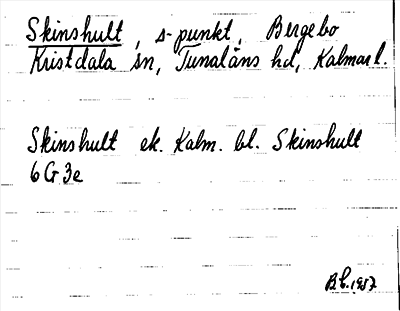 Skinshult, s-punkt, Bergebo
Kristdala sn, Tunaläns hd, Kalmar l.
Skinshult ek. Kalm. bl. Skinshult
6G3e